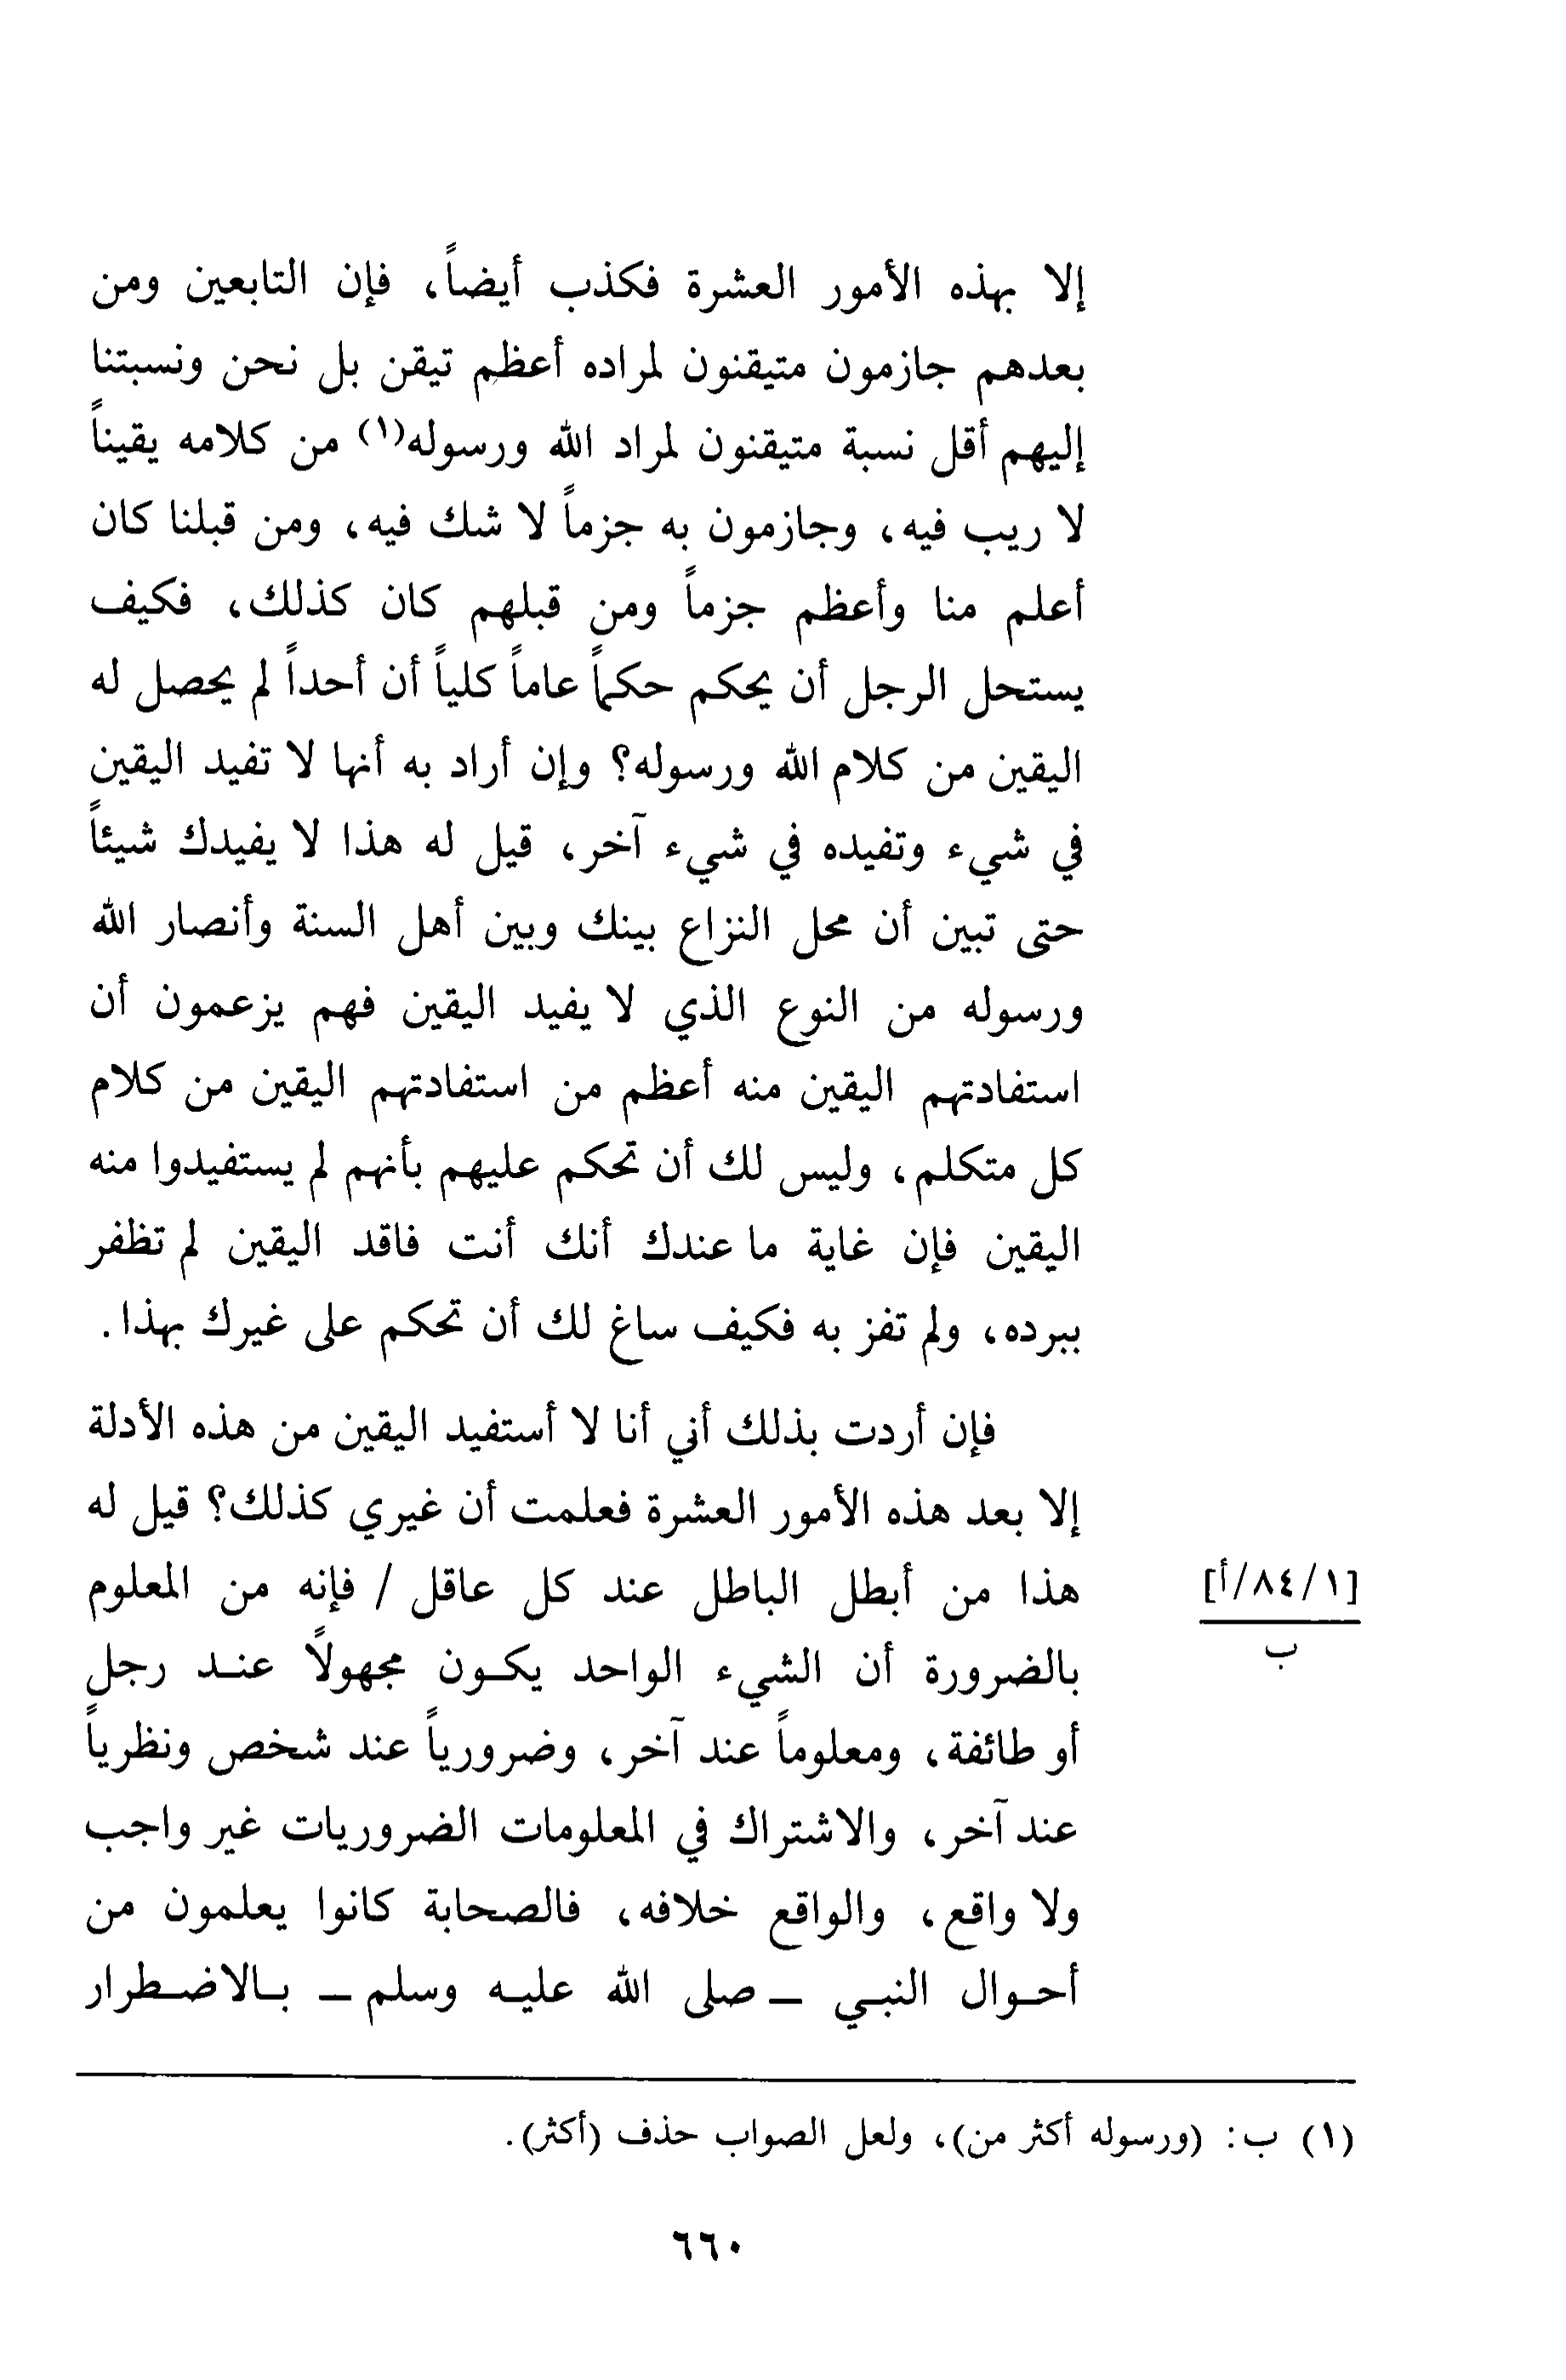 إلا بهذه الأمور العشرة فكذب أيضاً، فإن التابعين ومن
بعدهم جازمون متيقنون لمراده أعظم تيقن بل نحن ونسبتنا
إليهم أقل نسبة متيقنون لمراد الله ورسوله(١) من كلامه يقيناً
لا ريب فيه، وجازمون به جزماً لا شك فيه، ومن قبلنا كان
أعلم منا وأعظم جزماً ومن قبلهم كان كذلك، فكيف
يستحل الرجل أن يحكم حكماً عاماً كلياً أن أحداً لم يحصل له
اليقين من كلام الله ورسوله؟ وإن أراد به أنها لا تفيد اليقين
في شيء وتفيده في شيء آخر، قيل له هذا لا يفيدك شيئاً
حتى تبين أن محل النزاع بينك وبين أهل السنة وأنصار الله
ورسوله من النوع الذي لا يفيد اليقين فهم يزعمون أن
استفادتهم اليقين منه أعظم من استفادتهم اليقين من كلام
كل متكلم، وليس لك أن تحكم عليهم بأنهم لم يستفيدوا منه
اليقين فإن غاية ما عندك أنك أنت فاقد اليقين لم تظفر
ببرده، ولم تفز به فكيف ساغ لك أن تحكم على غيرك بهذا.
فإن أردت بذلك أني أنا لا أستفيد اليقين من هذه الأدلة
إلا بعد هذه الأمور العشرة فعلمت أن غيري كذلك؟ قيل له
هذا من أبطل الباطل عند كل عاقل / فإنه من المعلوم
[١/٨٤/أ]
ب
بالضرورة أن الشيء الواحد يكون مجهولاً عند رجل
أو طائفة، ومعلوماً عند آخر، وضرورياً عند شخص ونظرياً
عند آخر، والاشتراك في المعلومات الضروريات غير واجب
ولا واقع، والواقع خلافه، فالصحابة كانوا يعلمون من
أحوال النبي – صلى الله عليه وسلم – بالاضطرار
(١) ب: (ورسوله أكثر من)، ولعل الصواب حذف (أكثر).
٦٦٠